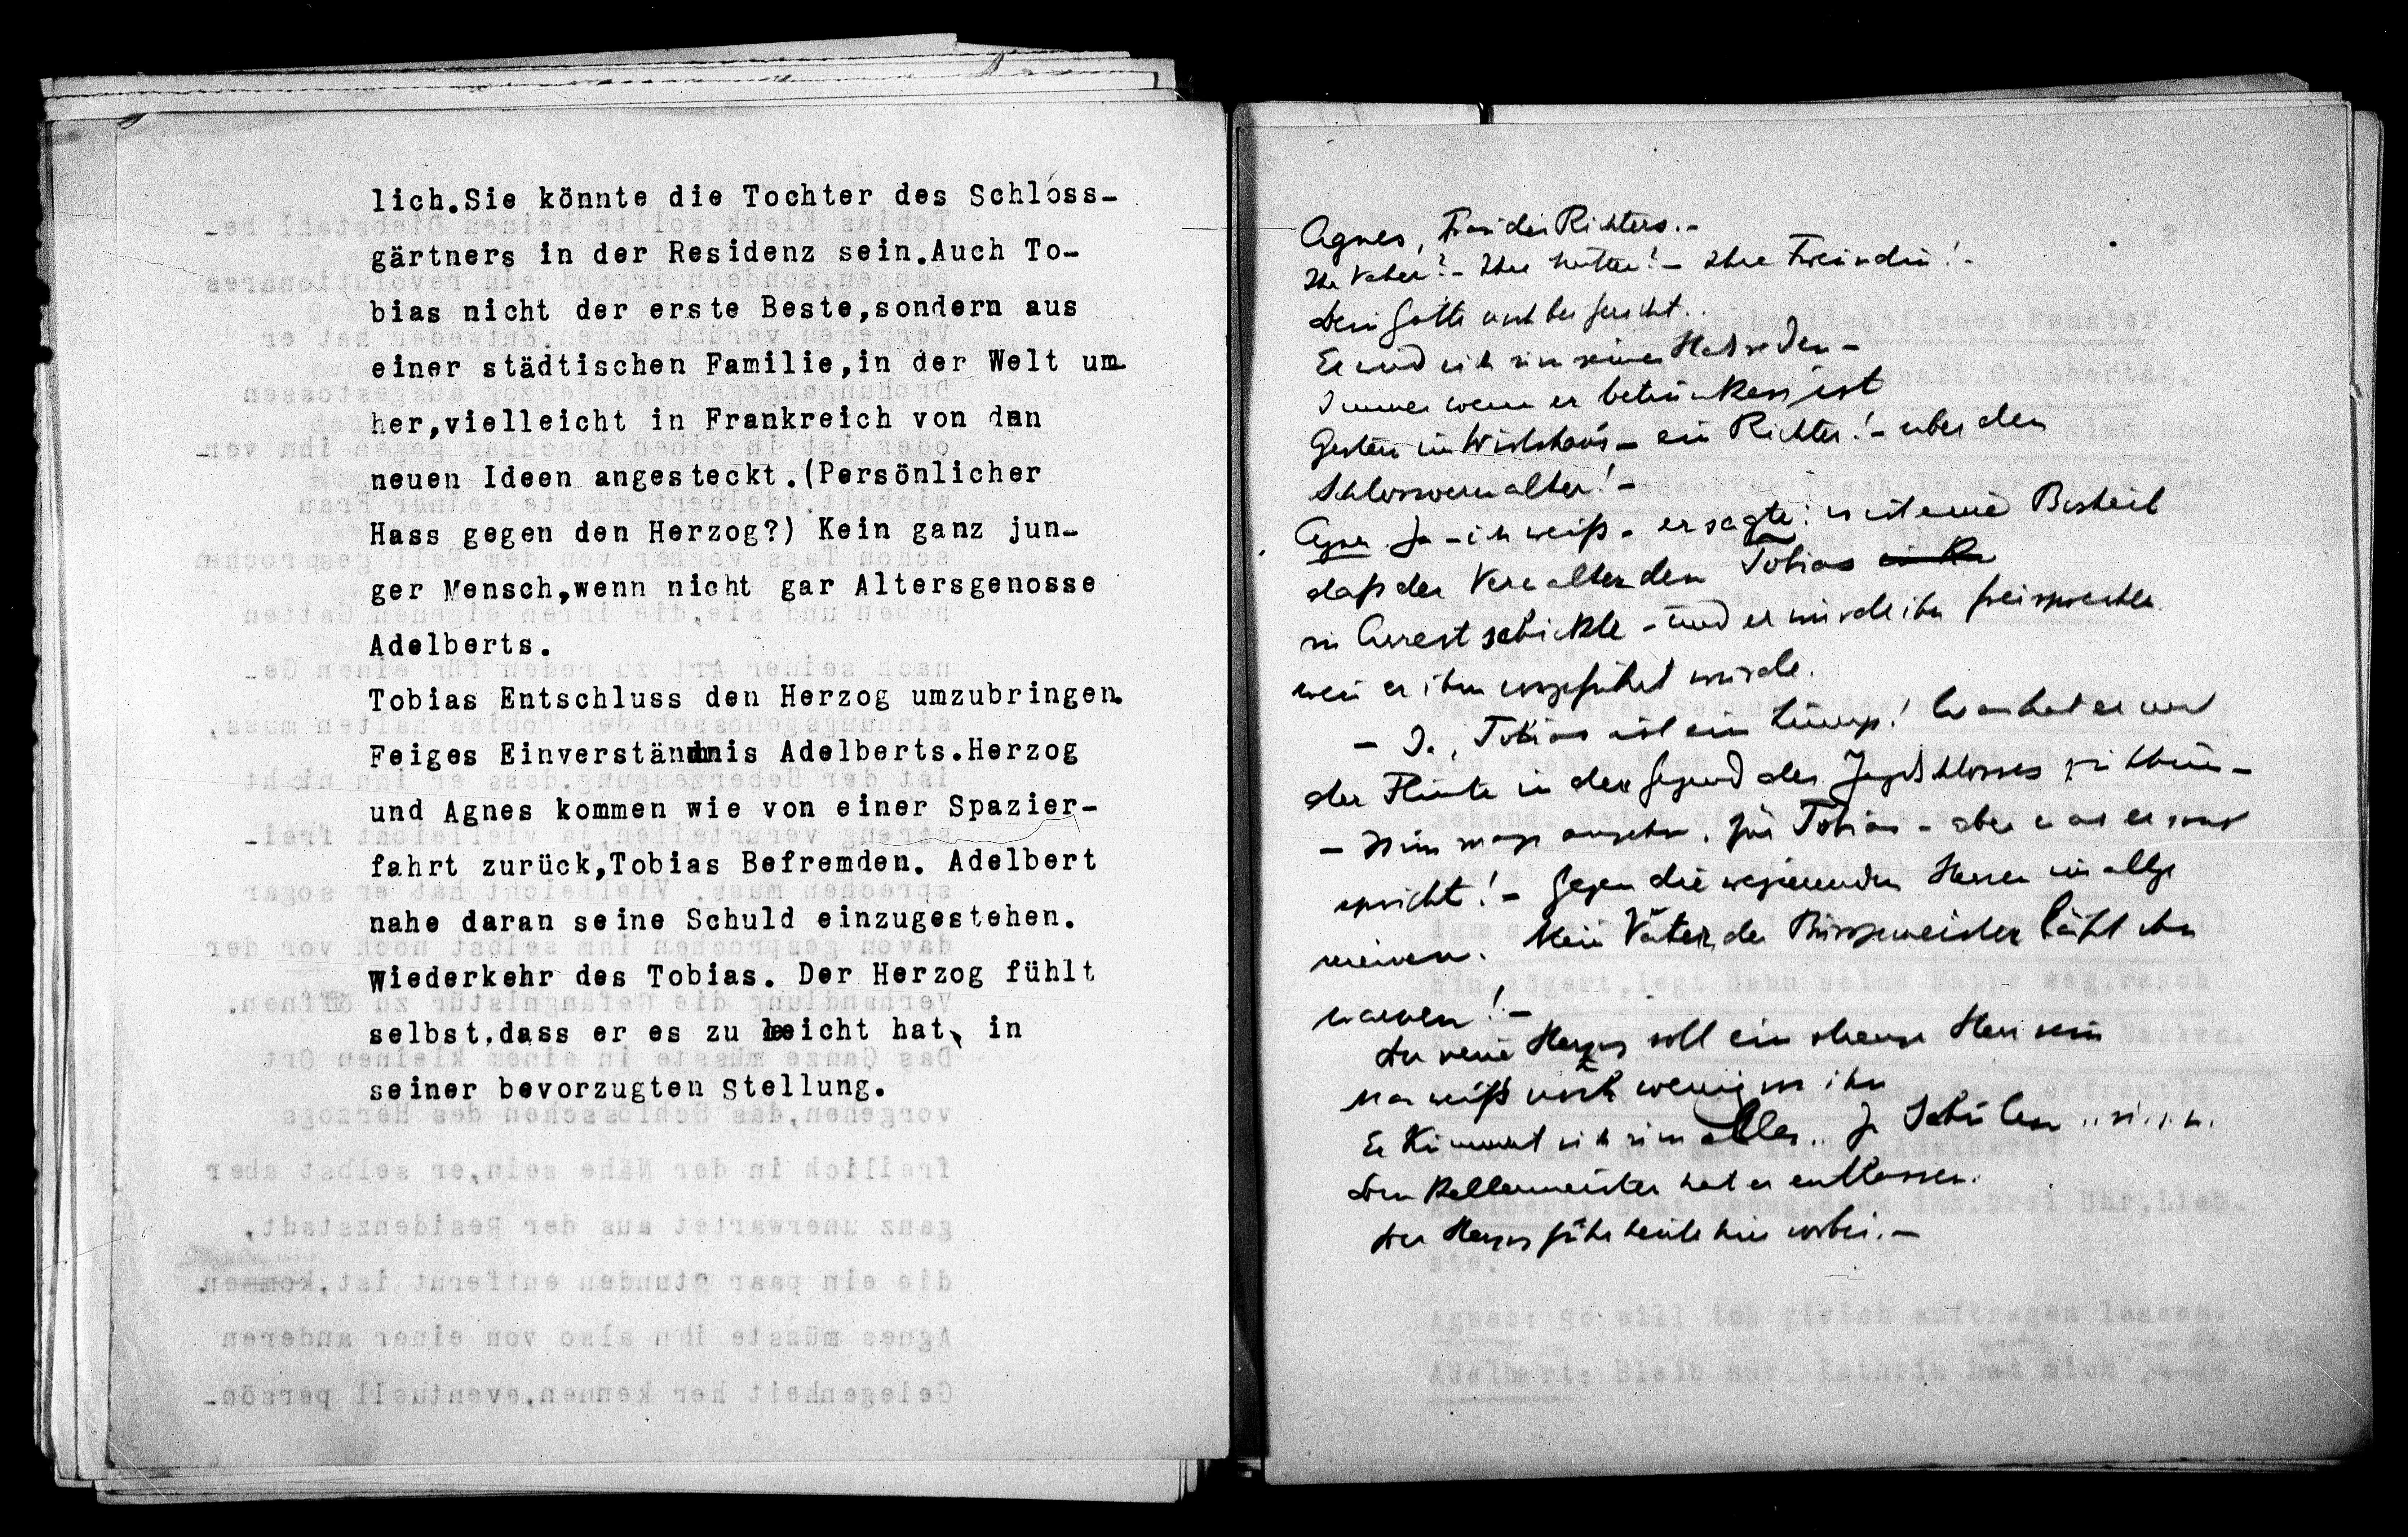 lich.Sie könnte die Tochter des Schloss-
gärtners in der Residenz sein.Auch To-
bias nicht der erste Beste,sondern aus
einer städtischen Familie,in der Welt um-
her,vielleicht in Frankreich von den
neuen Ideen angesteckt.(Persönlicher
Hass gegen den Herzog?) Kein ganz jun-
ger Mensch,wenn nicht gar Altersgenosse
Adelberts.
Tobias Entschluss den Herzog umzubringen.
Feiges Einverständnis Adelberts.Herzog
und Agnes kommen wie von einer Spazier-
fahrt zurück,Tobias Befremden. Adelbert
nahe daran seine Schuld einzugestehen.
Wiederkehr des Tobias. Der Herzog fühlt
selbst,dass er es zu leicht hat, in
seiner bevorzugten Stellung.
Agnes, Frau des Richters.-
Ihr Vater?- Ihre Mutter!- Ihre Freundin!-
Dein Gatte noch bei Gericht..
Er wird sich um seinen Hals reden -
Immer wenn er betrunken ist
Gestern im Wirtshaus - ein Richter!- über den
Schlossverwalter!-
Agnes Ja - ich weiß - er sagte: es ist eine Bosheit
daß der Verwalter den Tobias
in Arrest schickte - und er würde ihn freisprechen
wenn er ihm vorgeführt würde.
- Ja, Tobias ist ein Lump! Was hat er mit
der Flinte in der Gegend des Jagdschlosses zu thun -
- Nun mags angehn, für Tobias - aber was er sonst
spricht! - Gegen die regierenden Herren im allge
meinen. Mein Vater, der Bürgermeister läßt ihn
warnen!-
Der neue Herzog soll ein strenger Herr sein
Man weiß noch wenig von ihm
Er kümmert sich um alles.. Ja Schulen
Den Kellermeister hat er entlassen.
Der Herzog fuhr heute hier vorbei.-